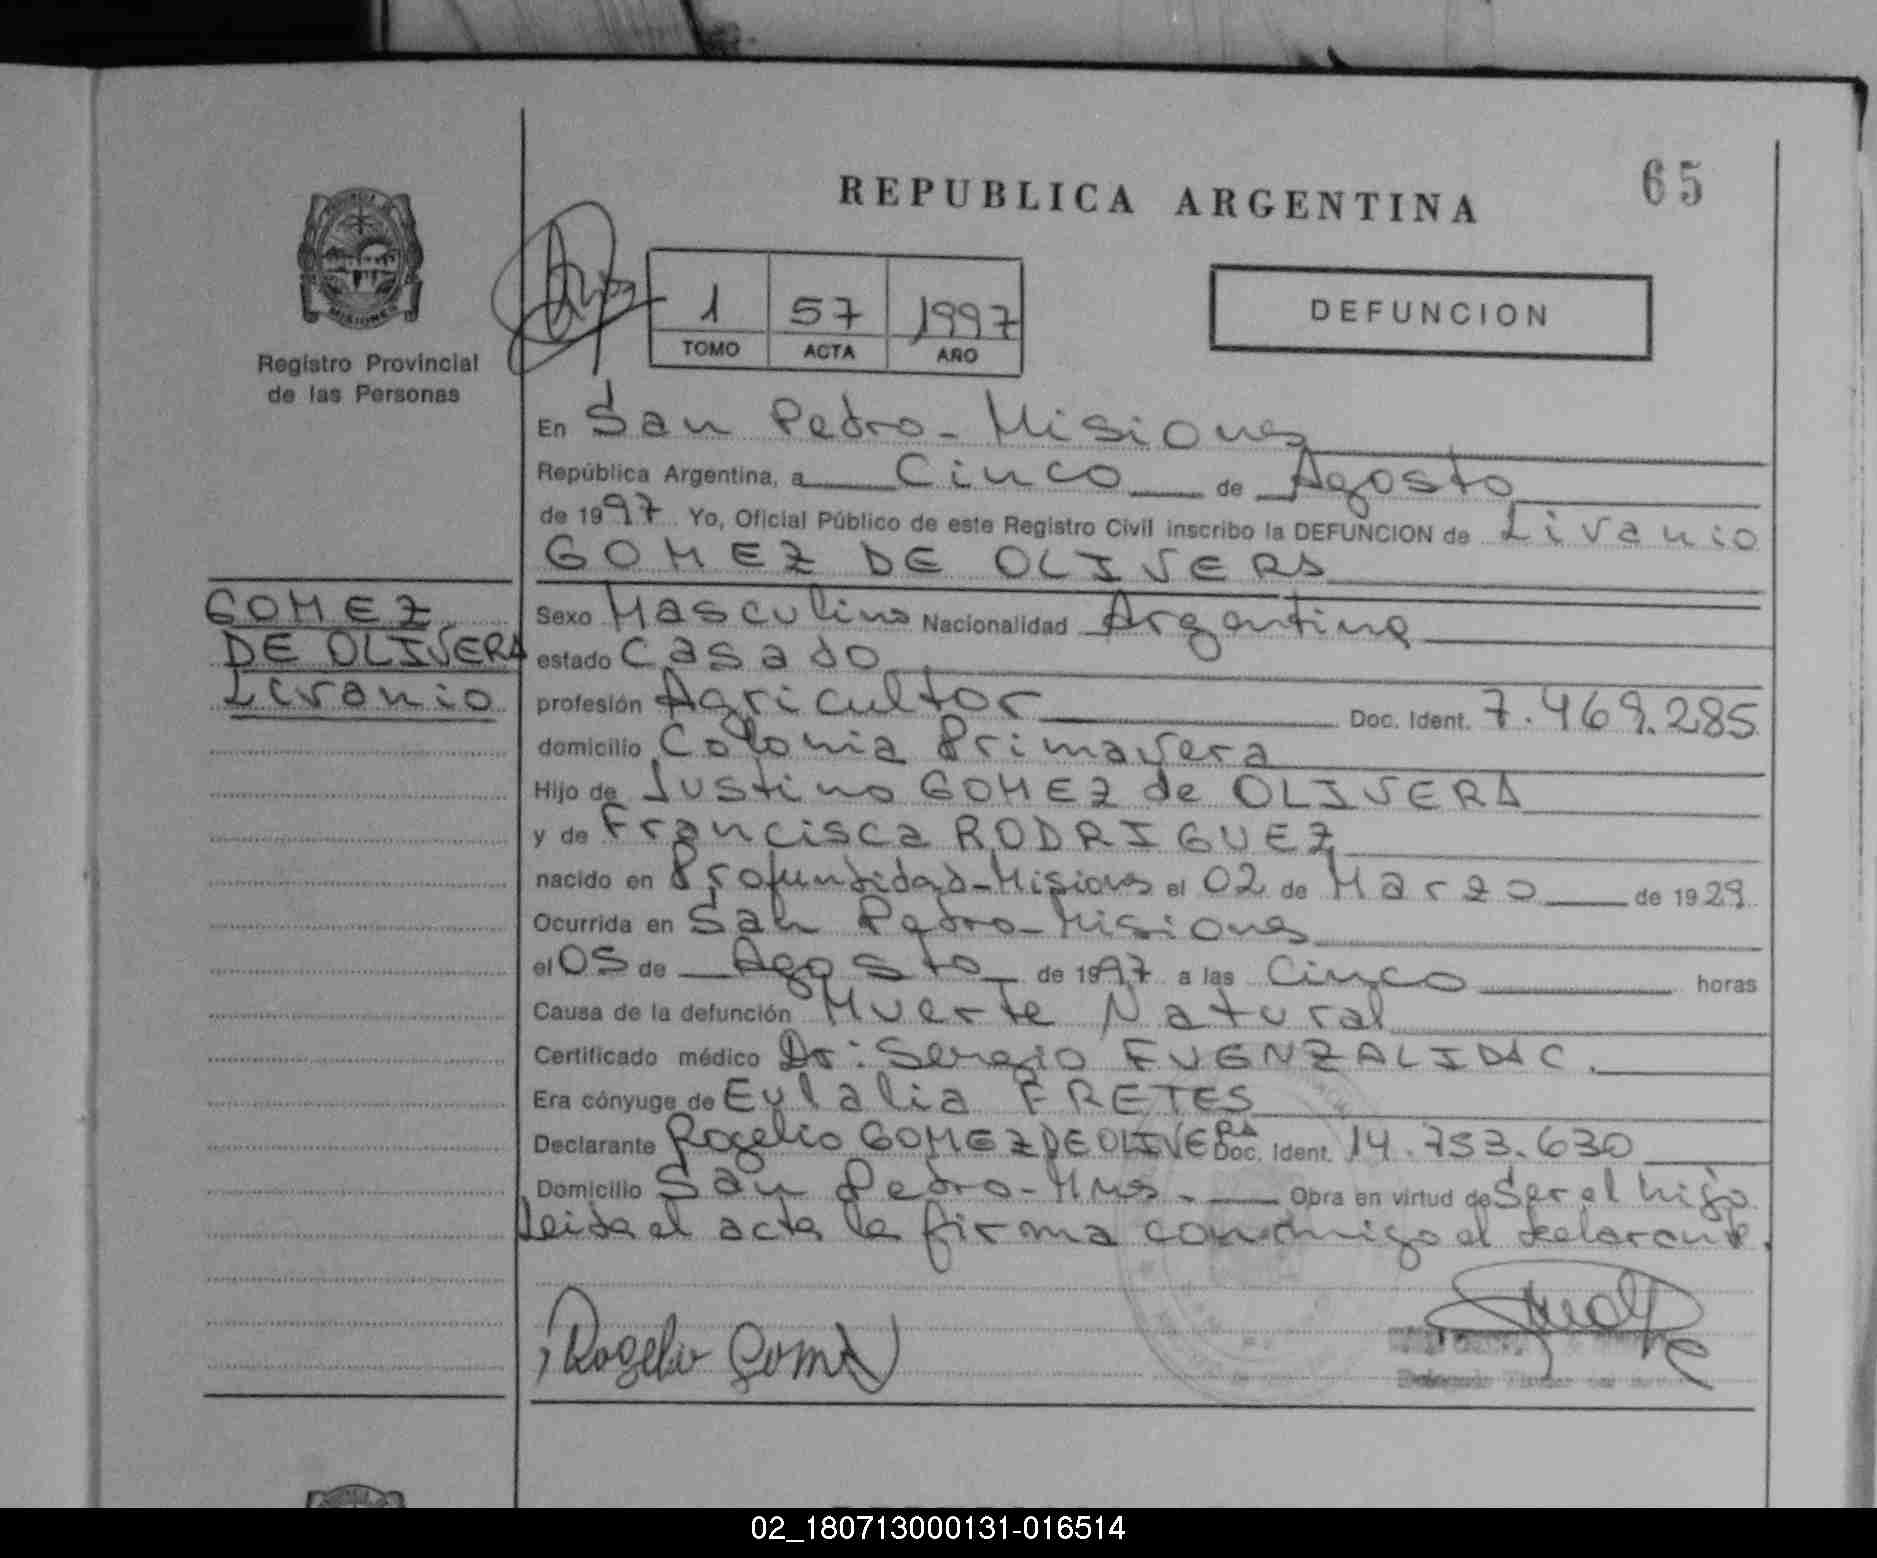 REPUBLICA ARGENTINA
65
MISIONES
Registro Provincial
de las Personas
1 57 1997
TOMO ACTA AÑO
DEFUNCION
En San Pedro - Misiones
República Argentina, a Cinco de Agosto
de 1997 Yo, Oficial Público de este Registro Civil inscribo la DEFUNCION de Livanio
GOMEZ DE OLIVERA
GOMEZ
DE OLIVERA
Livanio
Sexo Masculino Nacionalidad Argentina
estado Casado
profesión Agricultor Doc. Ident. 7.469.285
domicilio Colonia Primavera
Hijo de Justino GOMEZ de OLIVERA
y de Francisca RODRIGUEZ
nacido en Profundidad - Misiones el 02 de Marzo de 1929
Ocurrida en San Pedro - Misiones
el 05 de Agosto de 1997 a las Cinco horas
Causa de la defunción Muerte Natural
Certificado médico Dr: Sergio FUENZALIDA C.
Era cónyuge de Eulalia FRETES
Declarante Rogelio GOMEZ DE OLIVERA Doc. Ident. 14.753.630
Domicilio San Pedro - Mnes. Obra en virtud de Ser el hijo
Leida el acta la firma conmigo el declarante.
Rogelio Gomez
02_180713000131-016514